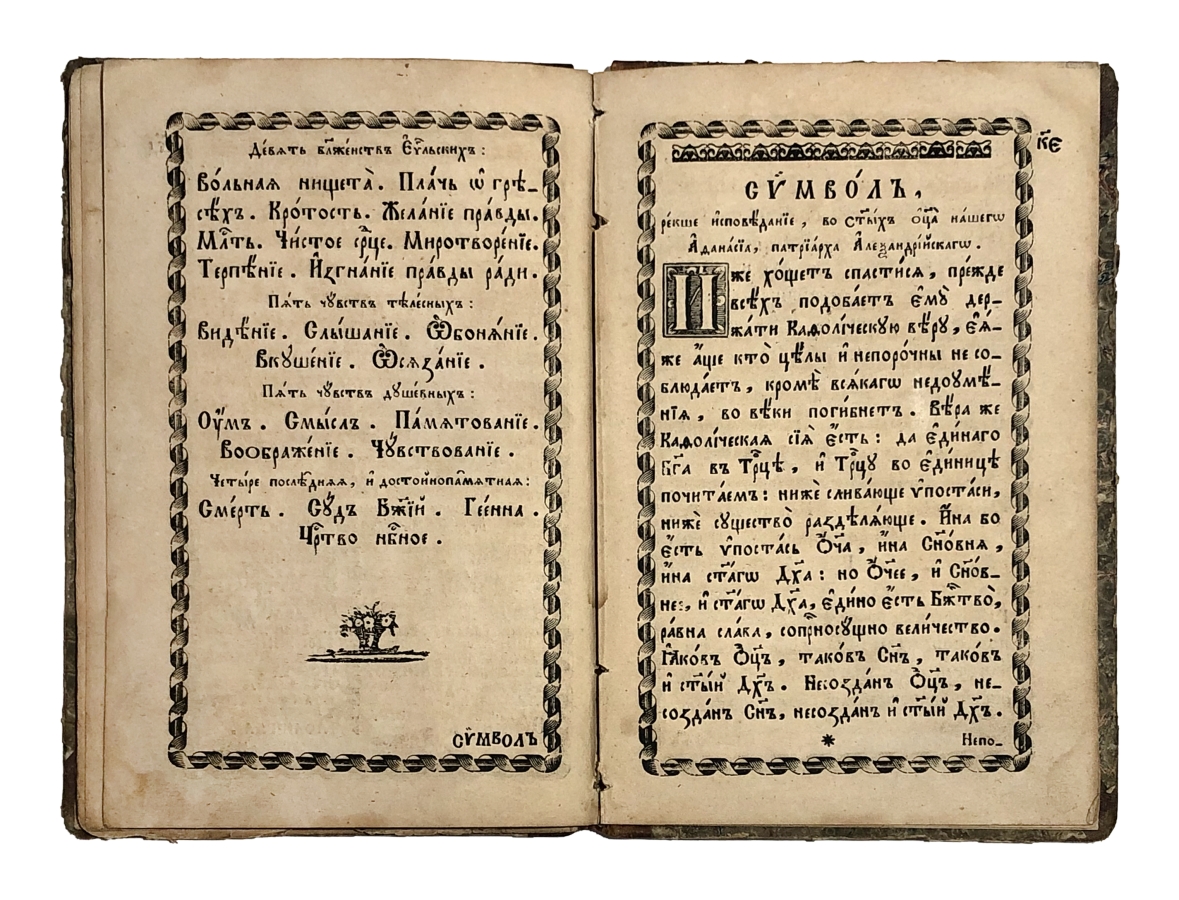 Де́вять бл҃же́нствъ Є҆ѵⷢ҇льскихъ :
Во́льная нищета̀ . Пла́чь ѡ҆ грѣ-
сѣ́хъ . Кро́тость . Жела́нїе пра́вды .
Мл҇ть . Чи́стое ср҇це . Миротворе́нїе .
Терпѣ́нїе . И҆згна́нїе пра́вды ра́ди .
Пѧ́ть чꙋ́вствъ тѣле́сныхъ :
Видѣ́нїе . Слы́шанїе . Ѡ҆боня́нїе .
Вкꙋше́нїе . Ѡ҆сяза́нїе .
Пѧ́ть чꙋ́вствъ дꙋше́вныхъ :
Оу҆́мъ . Смы́слъ . Па́мятованїе .
Воѡбраже́нїе . Чꙋ́вствованїе .
Четы́ре послѣ́дняя , и҆ достойнопа́мятная :
Сме́рть . Сꙋ́дъ Бж҃їй . Гее́нна .
Ц҇ртво нб҇ное .
СѴ́МВОЛЪ
к҃є
СѴ҆МВО́ЛЪ ,
ре́кше и҆сповѣ́данїе , во ст҃ы́хъ ѻ҆ц҃а̀ на́шегѡ
А҆ѳана́сїа , патрїа́рха А҆леѯандрі́йскагѡ .
И҆́же хо́щетъ спасти́ся , пре́жде
всѣ́хъ подоба́етъ є҆мꙋ̀ дер-
жа́ти Каѳолі́ческꙋю вѣ́рꙋ , є҆ѧ́-
же а҆́ще кто̀ цѣ́лы и҆ непоро́чны не со-
блюда́етъ , кромѣ̀ вся́кагѡ недоꙋмѣ́-
нїя , во вѣ́ки поги́бнетъ . Вѣ́ра же
Каѳолі́ческая сїѧ̀ є҆́сть : да є҆ди́наго
Бг҃а въ Трⷪ҇цѣ , и҆ Трⷪ҇цꙋ во є҆ди́ницѣ
почита́емъ : нижѐ слива́юще ѵ҆поста́си ,
нижѐ сꙋщество̀ раздѣля́юще . И҆́на бо
є҆́сть ѵ҆поста́сь Ѻ҆́ч҃а , и҆́на Сн҃о́вня ,
и҆́на ст҃а́гѡ Дх҃а : но Ѻ҆́чее , и҆ Сн҃о́в-
не: , и҆ ст҃а́гѡ Дх҃а , є҆ди́но є҆́сть Бж҇тво̀ ,
ра́вна сла́ка , сопрⷭ҇носꙋ́щно вели́чество .
Ꙗ҆ко́въ Ѻ҆ц҃ъ , тако́въ Сн҃ъ , тако́въ
и҆ ст҃ы́й Дх҃ъ . Несозда́н Ѻ҆ц҃ъ , не-
созда́н Сн҃ъ , несозда́н и҆ ст҃ы́й Дх҃ъ .
* Непо-